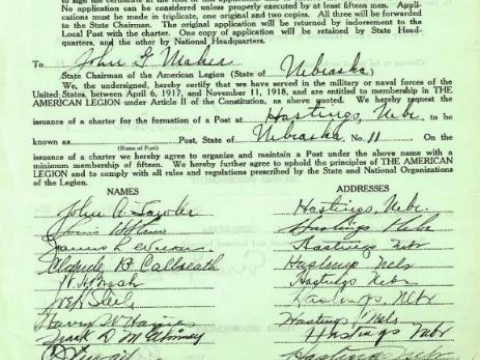 No application can be considered unless properly executed by at least fifteen men. Appli-
cations must be made in triplicate, one original and two copies. All three will be forwarded
to the State Chairman. The original application will be returned by indorsement to the
Local Post with the charter. One copy of application will be retained by State Head-
quarters, and the other by National Headquarters.
To John G. Maher
State Chairman of the American Legion (State of Nebraska.)
We, the undersigned, hereby certify that we have served in the military or naval forces of the
United States, between April 6, 1917, and November 11, 1918, and are entitled to membership in THE
AMERICAN LEGION under Article II of the Constitution, as above quoted. We hereby request the
issuance of a charter for the formation of a Post at Hastings, Nebr., to be
known as Post, State of Nebraska No. 11 On the
(Name of Post)
issuance of a charter we hereby agree to organize and maintain a Post under the above name with a
minimum membership of fifteen. We hereby further agree to uphold the principles of THE AMERICAN
LEGION and to comply with all rules and regulations prescribed by the State and National Organizations
of the Legion.
NAMES ADDRESSES
John A. Hastings, Nebr.
Hastings Nebr
James Hastings Nebr
B Hastings Nebr
Hastings Nebr
Hastings Nebr
Harry Hastings Nebr
Frank D. Hastings Nebr
Hastings